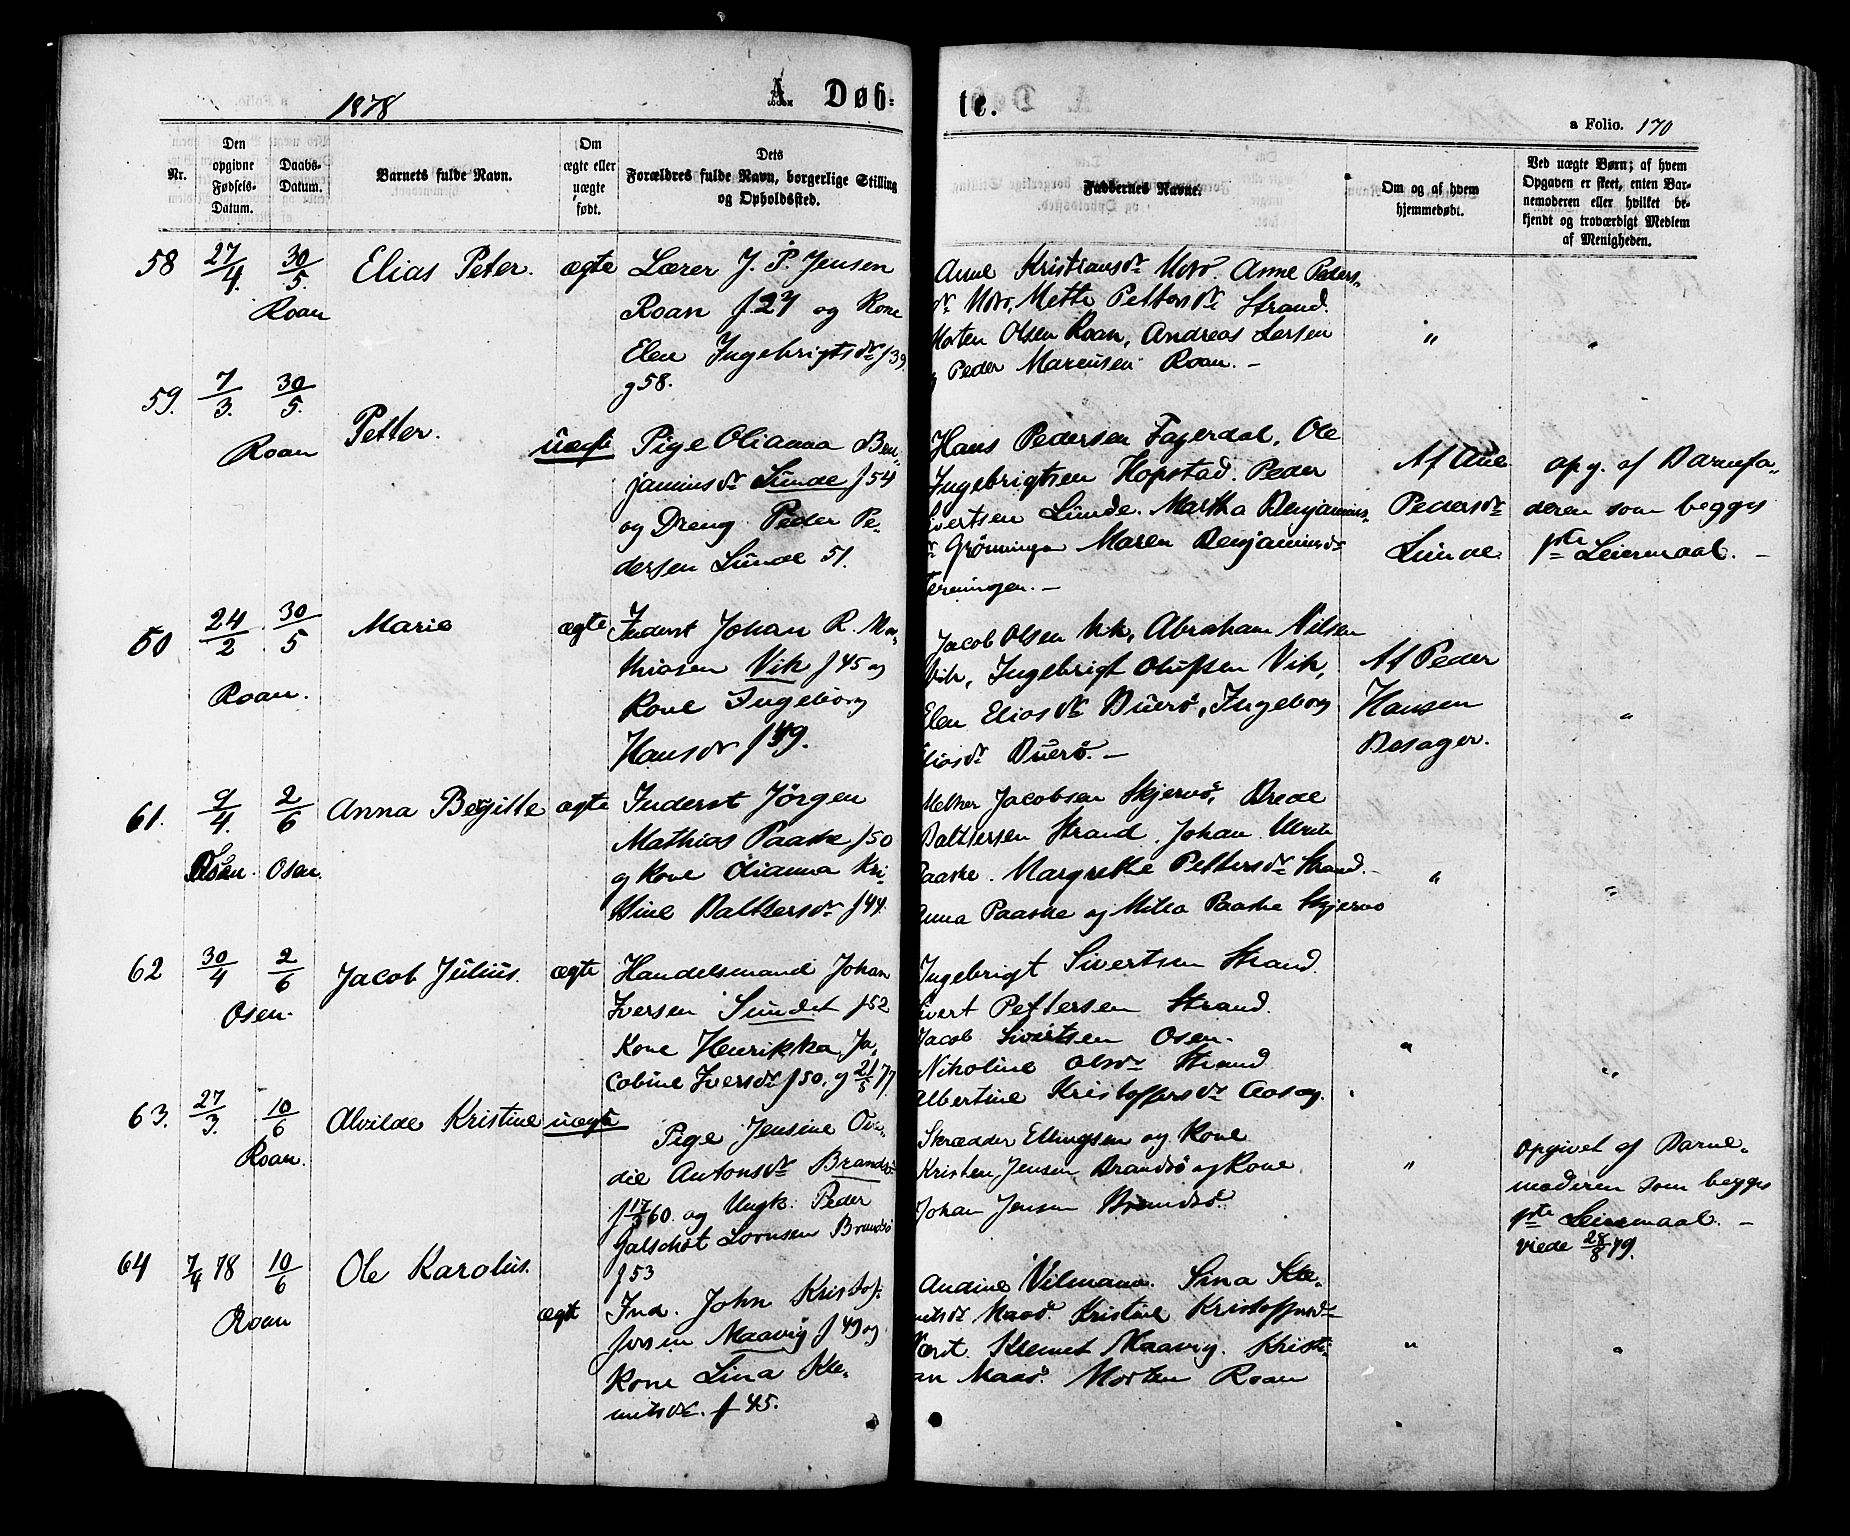 1878
A Døb-
te.
a Folio. 170
Nr.
Den opgivne Fødsels-Datum.
Daabs-Datum.
Barnets fulde Navn.
Om ægte eller uægte født.
Dets Forældres fulde Navn, borgerlige Stilling og Opholdssted.
Faddernes Navne.
Om og af hvem hjemmedøbt.
Ved uægte Børn; af hvem Opgaven er skeet, enten Barnemoderen eller hvilket bekjendt og troværdigt Medlem af Menigheden.
58 27/4. 30/5. Elias Peter. ægte Lærer J. P. Jensen
Roan
Roan f 27 og Kone
Elen Ingebrigtsdr f 39
g 58.
Anne Kristiansdr Moro. Anne Peders-
dr Moro, Mette Pettersdr Strand.
Morten Olsen Roan, Andreas Larsen
g Peder Marcusen Roan. –
" "
59. 7/3. 30/5. Petter. uægte Pige Olianna Ben-
Roan
jaminsdr Lunde f 54
og Dreng Peder Pe-
dersen Lunde 51.
Hans Pedersen Fagerdal, Ole
Ingebrigtsen Hopstad. Peder
Evertsen Lunde. Martha Benjamins-
dr Grønningen Maren Benjaminsdr
Terningen. –
Af Ane
Pedersdr
Lunde
opg. af Barnefa-
deren som begges
1ste Leiermaal. –
50 24/2 30/5 Marie ægte Inderst Johan R. Ma-
Roan.
thiasen Vik f 45 og
Kone Ingeborg
Hansdr f 49.
Jacob Olsen Vik, Abraham Nilsen
Vik, Ingebrigt Olufsen Vik,
Elen Eliasdr Buerø, Ingeborg
Eliasdr Buerø. –
Af Peder
Hansen
Besager.
"
61. 9/4. 2/6 Anna Bergitte ægte Inderst Jørgen
Osen. Osen.
Mathias Paaske f 50
og Kone Olianna Kri-
stine Baltzersdr f 44.
Melker Jacobsen Skjervø, Brede
Baltzersen Strand. Johan Ulrik
Paaske. Margrethe Pettersdr Strand. –
Anna Paaske og Milla Paaske Skjervø
" "
62 30/4 2/6 Jacob Julius. ægte Handelsmand Johan
Osen.
Iversen Sundet f 52
Kone Henrikka Ja-
cobine Iversdr f 50. g 21/5 77
Ingebrigt Sivertsen Strand.
Sivert Pettersen Strand.
Jacob Sivertsen Osen.
Nikoline Olsdr Strand
Albertine Kristoffersdr Aasag.
" "
63. 27/3. 10/6 Alvilde Kristine uægte Pige Jensine Ove-
Roan.
die Antonsdr Brandsø
f 17/3 60. og Ungk. Peder
Galschøt Lornsen Brandsø
f 53
Skrædder Ellingsen og Kone
Kristen Jensen Brandsø og Kone.
Johan Jensen Brandsø.
"
Opgivet af Barne-
moderen som begges
1ste Leiermaal. –
viede 28/8 79.
64 7/4 78 10/6 Ole Karolius. ægte Ind. John Kristof-
Roan
fersen Maavig f 49 og
Kone Lina Kle-
metsdr. f 45.
Andine Vilmann. Sina Kle-
metsdr Maaø. Kristine Kristoffersdr
Kremet Maavig. Kristi-
an Maaø. Morten Roan
" "